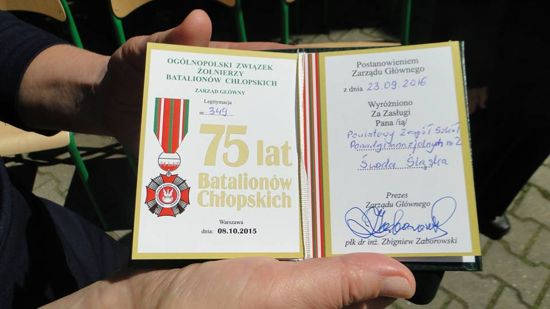 OGÓLNOPOLSKI ZWIĄZEK
ŻOŁNIERZY
BATALIONÓW CHŁOPSKICH
ZARZĄD GŁÓWNY
Legitymacja
nr 349
75 lat
Batalionów
Chłopskich
Warszawa
dnia: 08.10.2015
Postanowieniem
Zarządu Głównego
z dnia 23.09.2016
Wyróżniono
Za Zasługi
Pana /ią/
Powiatowy Zespół Szkół
Ponadgimnazjalnych nr 2
Środa Śląska
Prezes
Zarządu Głównego
płk dr inż. Zbigniew Zaborowski